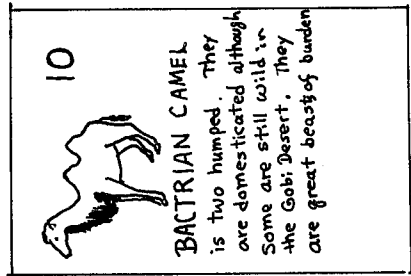 10
BACTRIAN CAMEL
is two humped. They
are domesticated although
Some are still wild in
the Gobi Desert. They
are great beasts of burden